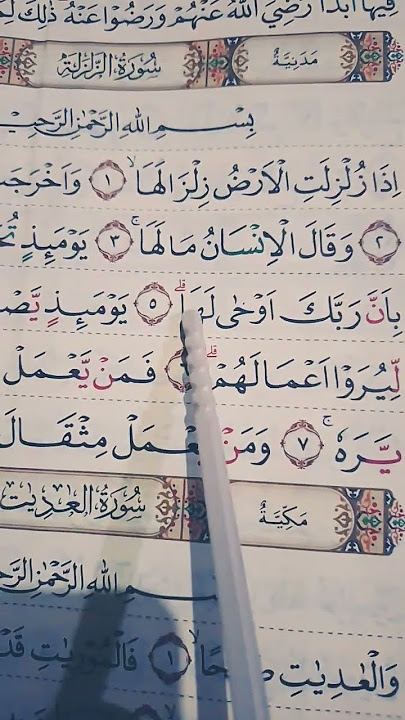 فِيهَا أَبَدًا رَضِيَ اللّٰهُ عَنْهُمْ وَرَضُوا عَنْهُ ذٰلِكَ
سُورَةُ الزَّلْزَلَةِ مَدَنِيَّةٌ
بِسْمِ اللّٰهِ الرَّحْمٰنِ الرَّحِيْـ
اِذَا زُلْزِلَتِ الْاَرْضُ زِلْزَالَهَاۙ ١ وَاَخْرَجَتِ
٢ وَقَالَ الْاِنْسَانُ مَا لَهَاۚ ٣ يَوْمَئِذٍ تُحَ
بِاَنَّ رَبَّكَ اَوْحٰى لَهَاۗ ٥ يَوْمَئِذٍ يَّصْ
لِّيُرَوْا اَعْمَالَهُمْۗ فَمَنْ يَّعْمَلْ
يَّرَهٗۚ ٧ وَمَنْ يَّعْمَلْ مِثْقَالَ
سُورَةُ الْعٰدِيٰتِ مَكِيَّةٌ
بِسْمِ اللّٰهِ الرَّحْمٰنِ الرَّحِـ
وَالْعٰدِيٰتِ ١ فَالْمُوْرِيٰتِ قَدْ